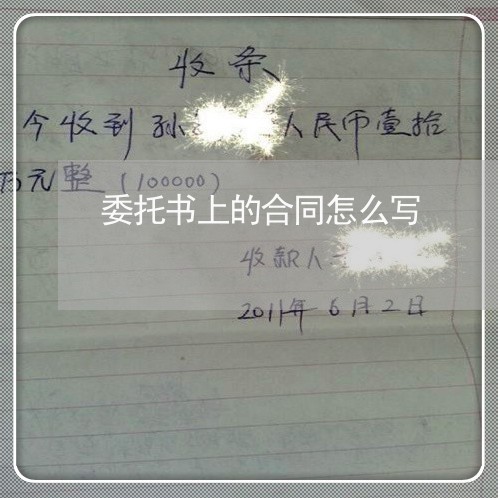 收条
今收到孙 人民币壹拾
万元整（100000）
委托书上的合同怎么写
收款人
2011年6月2日